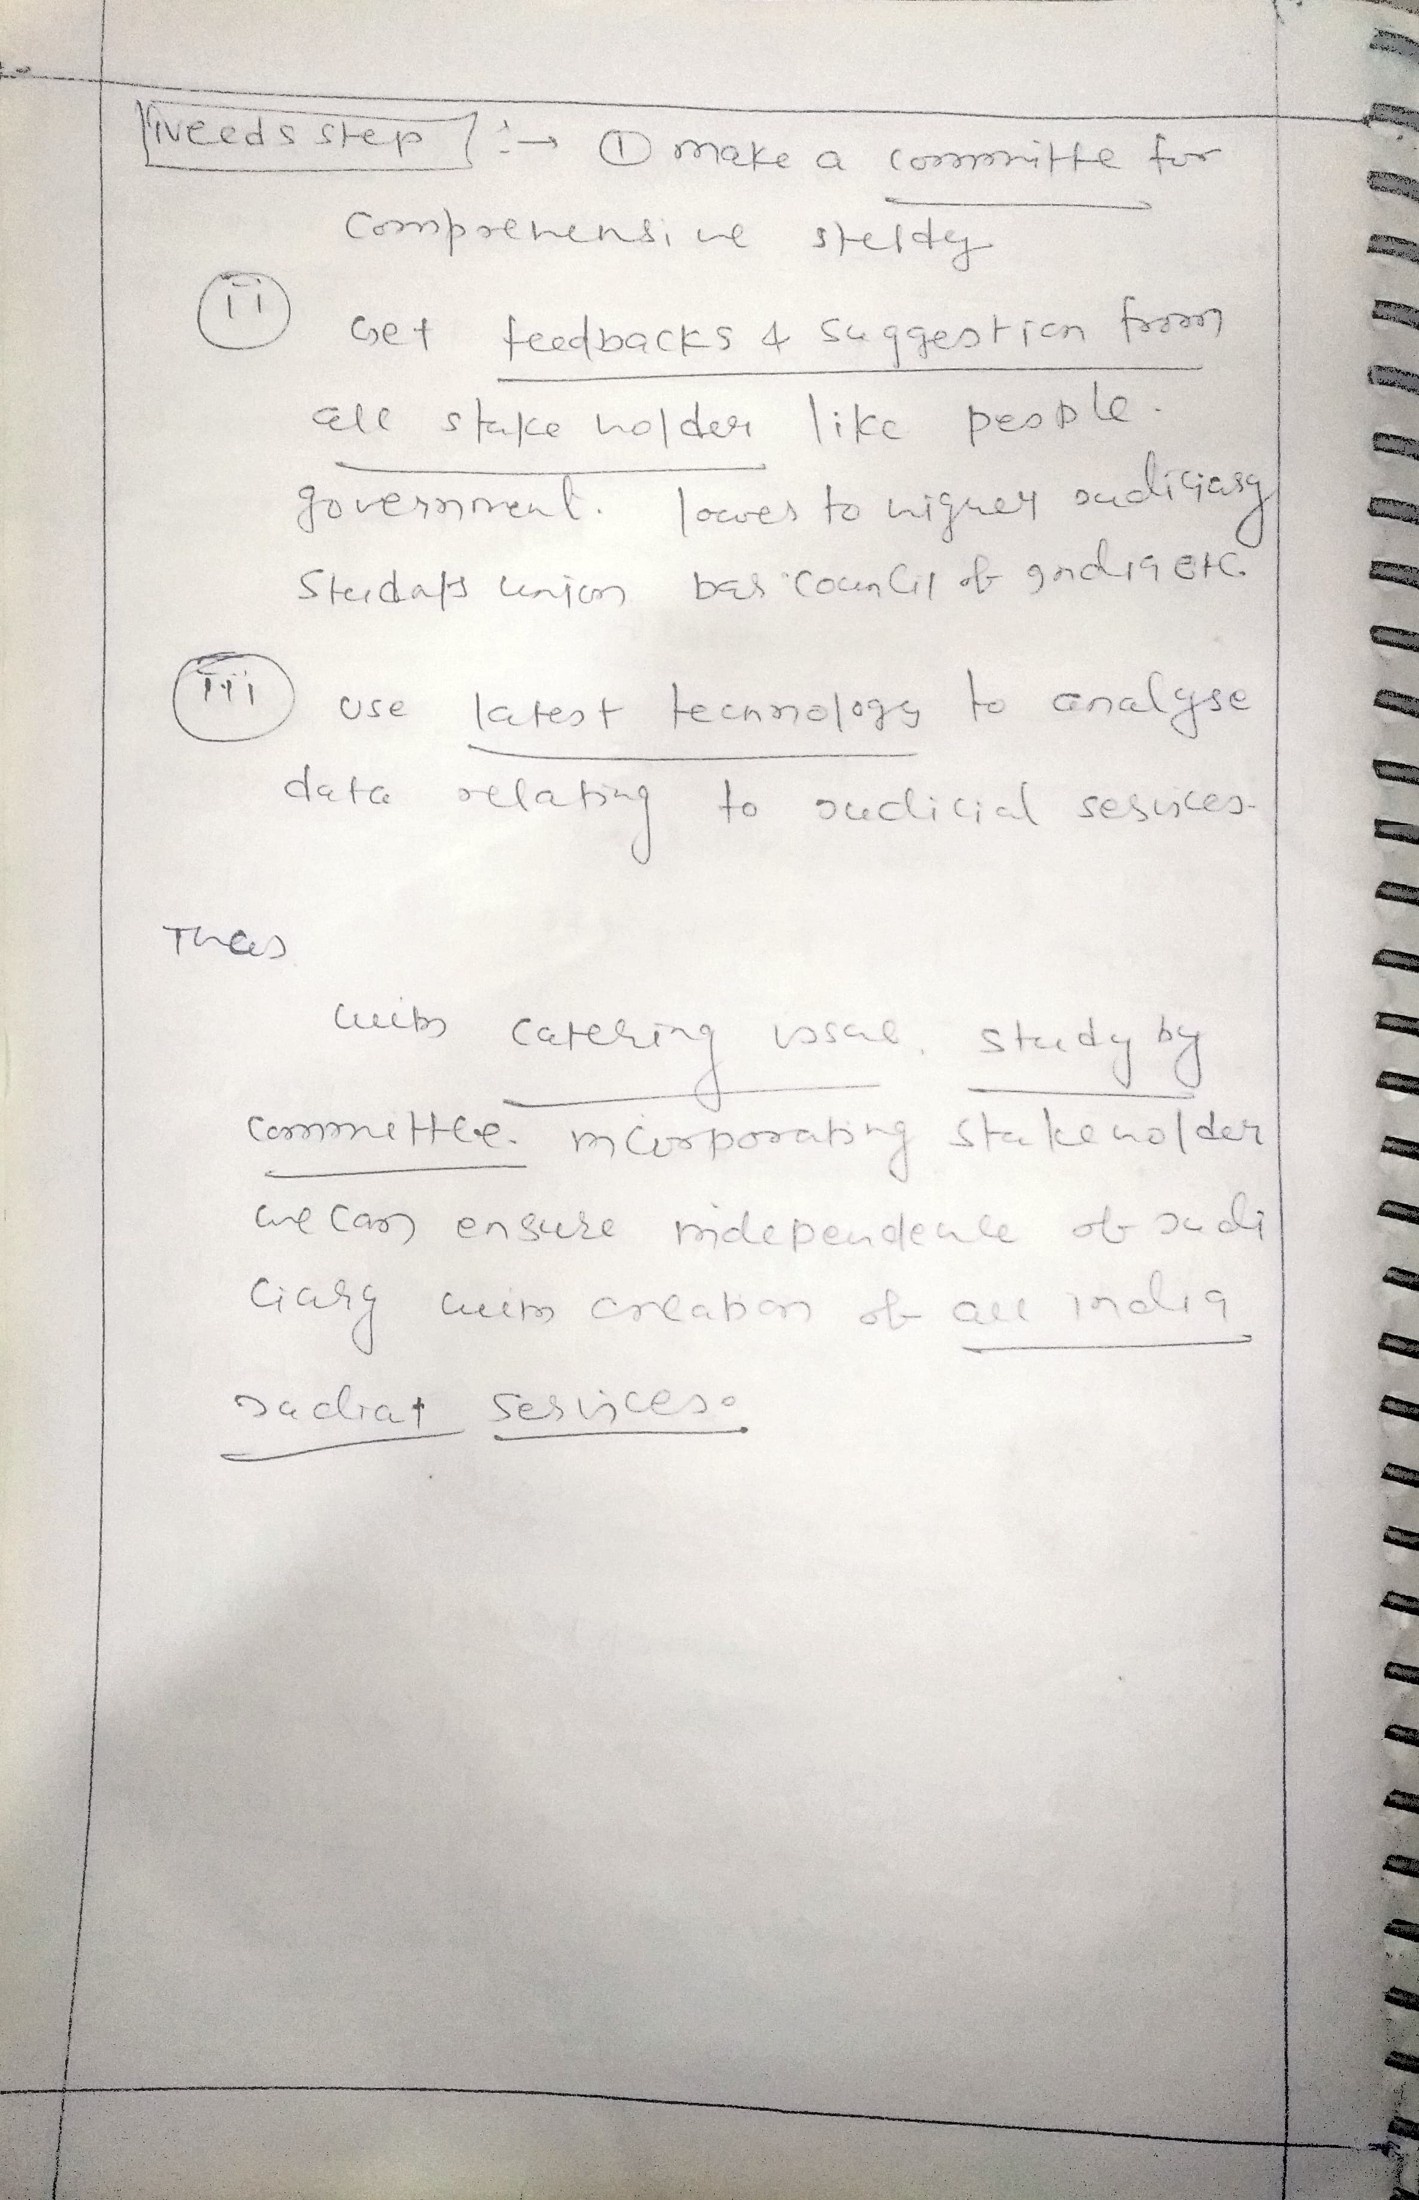 Needs step :→ ① make a committe for
comprehensive study
ii Get feedbacks & suggestion from
all stake holder like people.
government. lower to higher judiciary
Students union bar council of India etc.
iii use latest technology to analyse
data relating to judicial services.
Thus
with catering issue, study by
committee. incorporating stakeholder
we can ensure independence of judi
ciary with creation of all india
services.